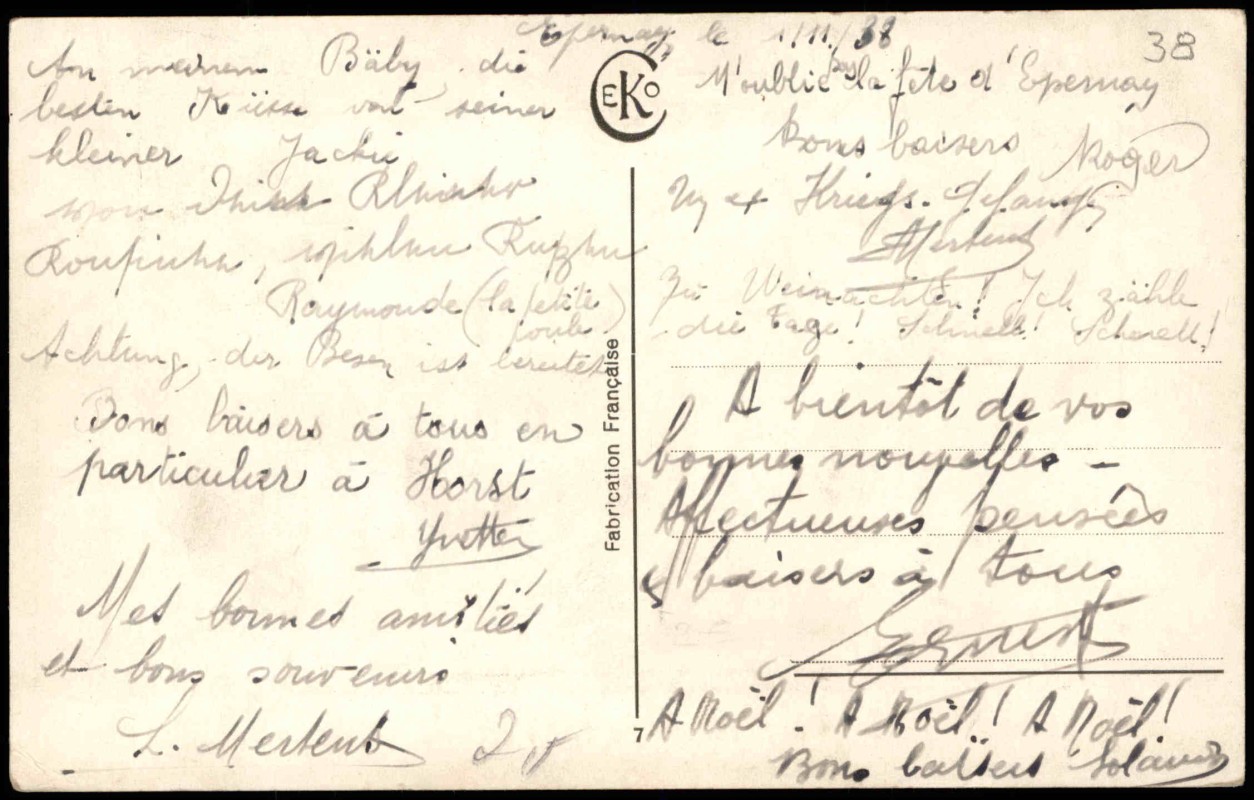 Epernay le 1/11/38
38
An meinem Bäby die
besten Küsse von seiner
kleiner Jackie
von
Raymonde (la petite
poule)
Achtung, der Besen ist bereitet
Bons baisers à tous en
particulier à Horst
Yvette
Mes bonnes amitiés
et bons souvenirs
L. Mertens
CEKO
Fabrication Française
7
N'oublie pas la fête d'Epernay
Bons baisers Roger
Mertens
Zu Weinachten! Ich zähle
die Tage! Schnell! Schnell!
A bientôt de vos
bonnes nouvelles -
Affectueuses pensées
& baisers à tous
Ernest
A Noël! A Noël! A Noël!
Bons baisers Solange